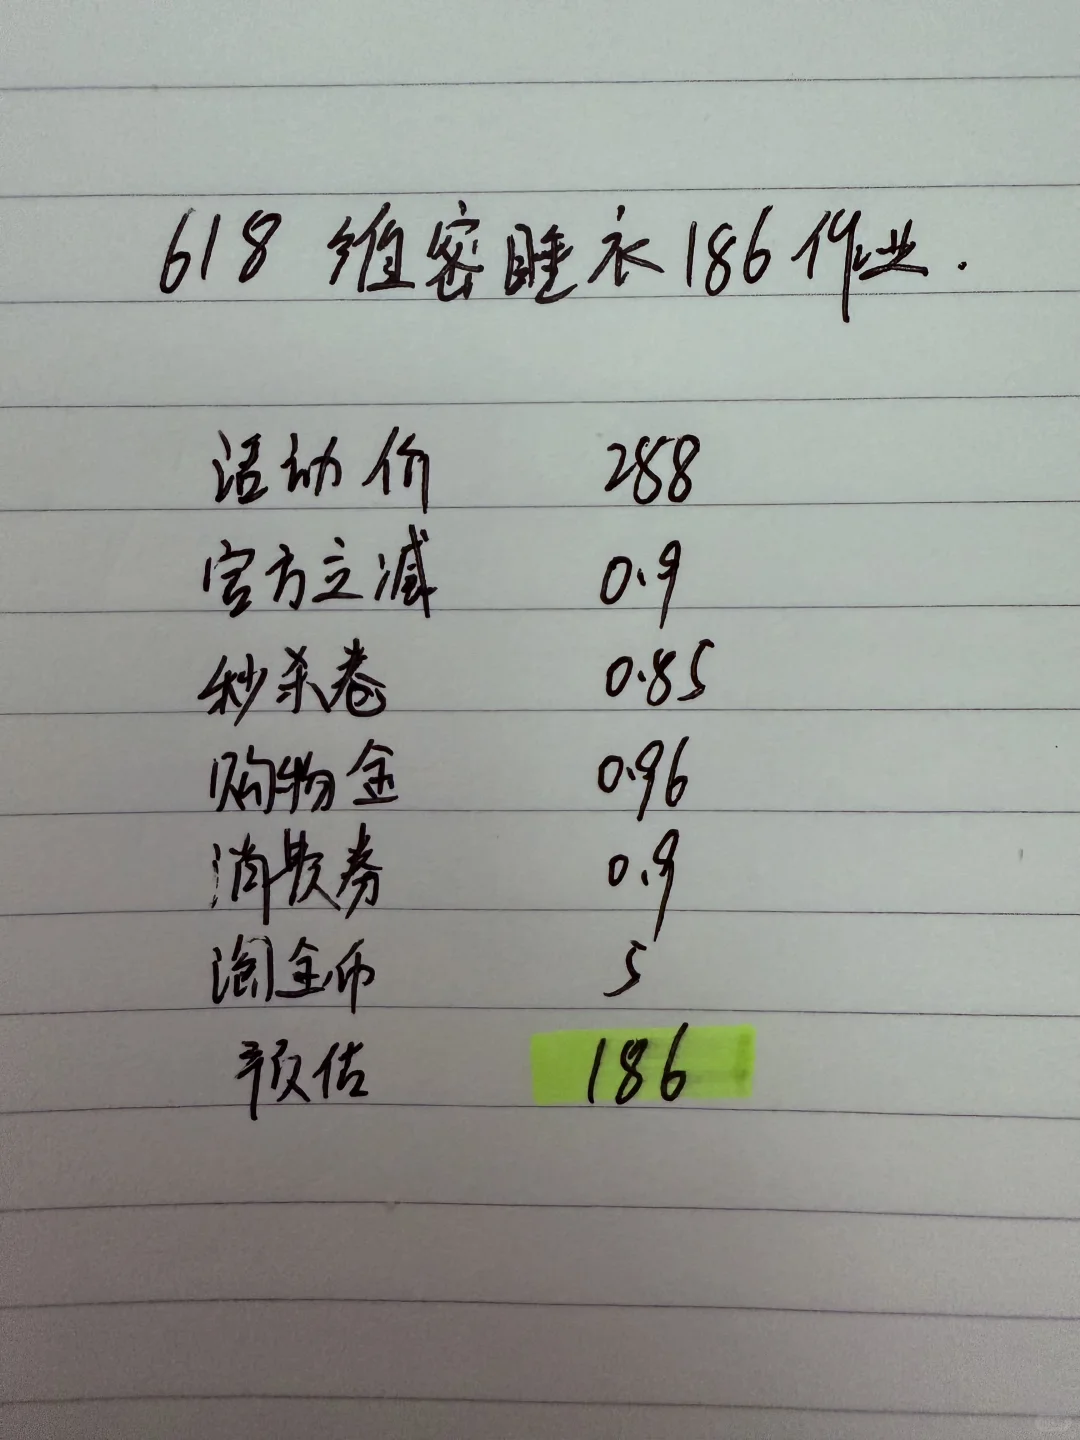 618 维密睡衣186作业.
活动价 288
官方立减 0.9
秒杀卷 0.85
购物金 0.96
消费券 0.9
淘金币 5
预估 186